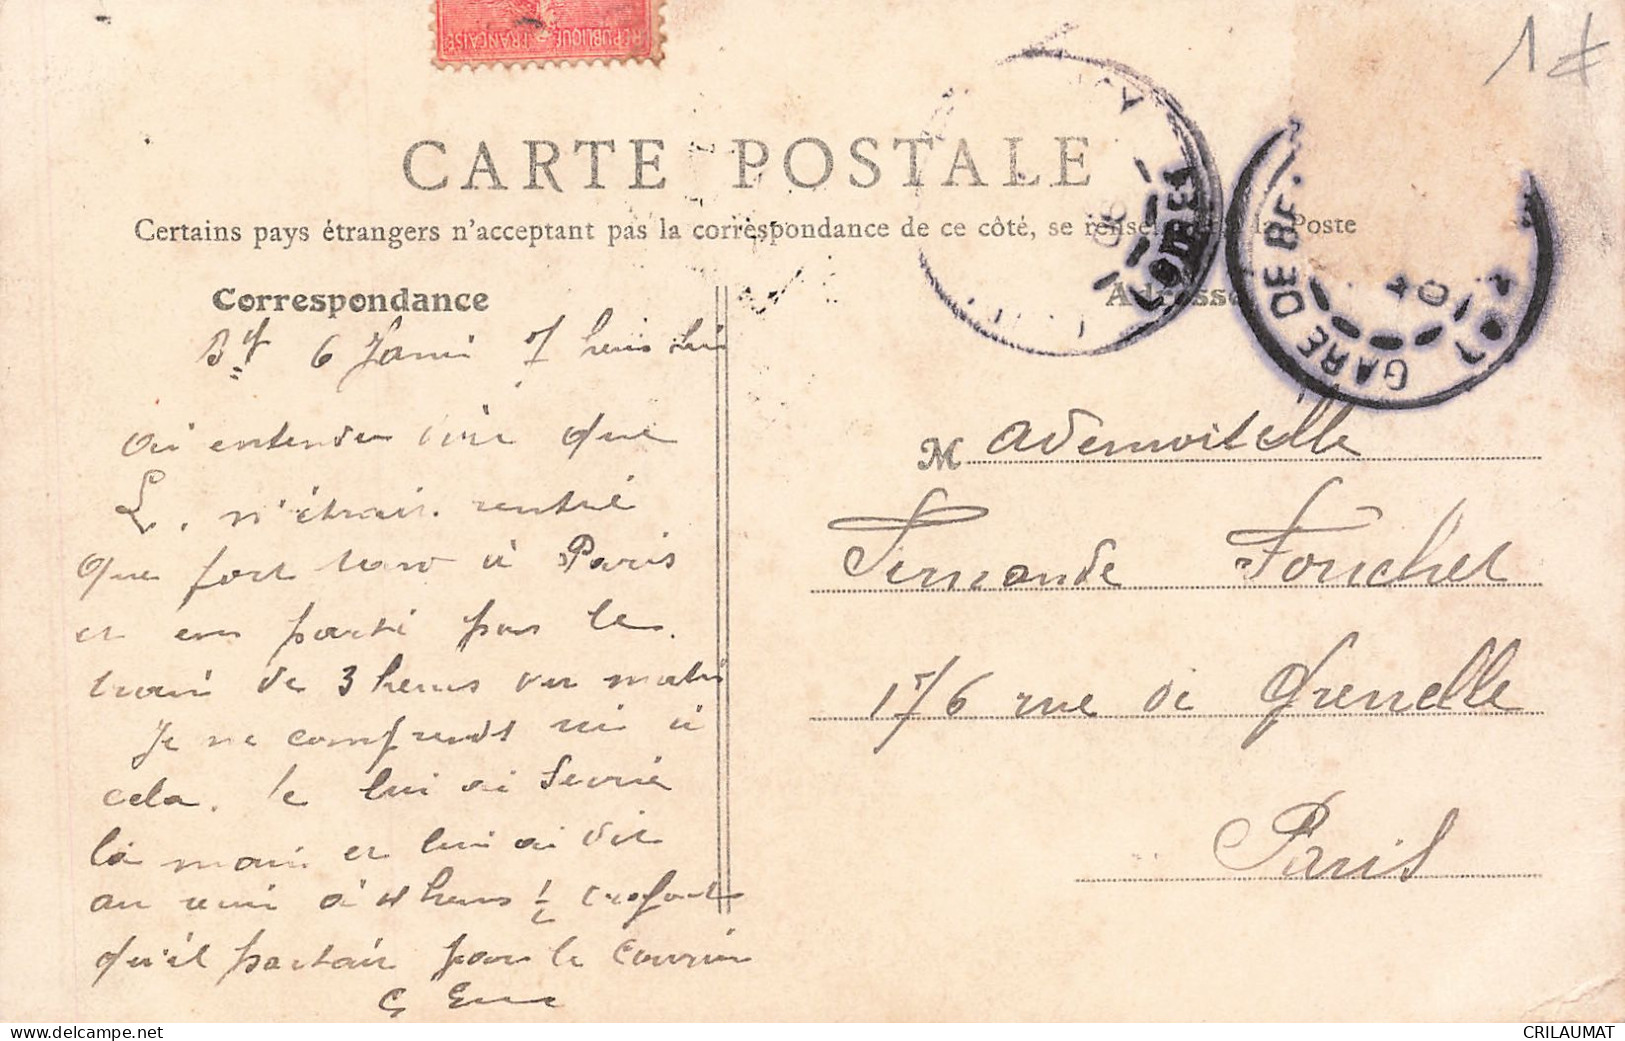 RÉPUBLIQUE FRANÇAISE
1 €
CARTE POSTALE
Certains pays étrangers n'acceptant pas la correspondance de ce côté, se la Poste
LOIRET
GARE DE BE
Correspondance
Adresse
By 6 7
ai entendu dire que
L. n'était rentré
que fort tard à Paris
et parti par le
train de 3 heures du matin
Je ne comprends rien à
cela. Je lui ai serré
la main et lui ai dit
au à 4 heures 1/2
qu'il partait pour le
Mademoiselle
Fernande Fouchet
176 rue de Grenelle
Paris
www.delcampe.net
CRILAUMAT